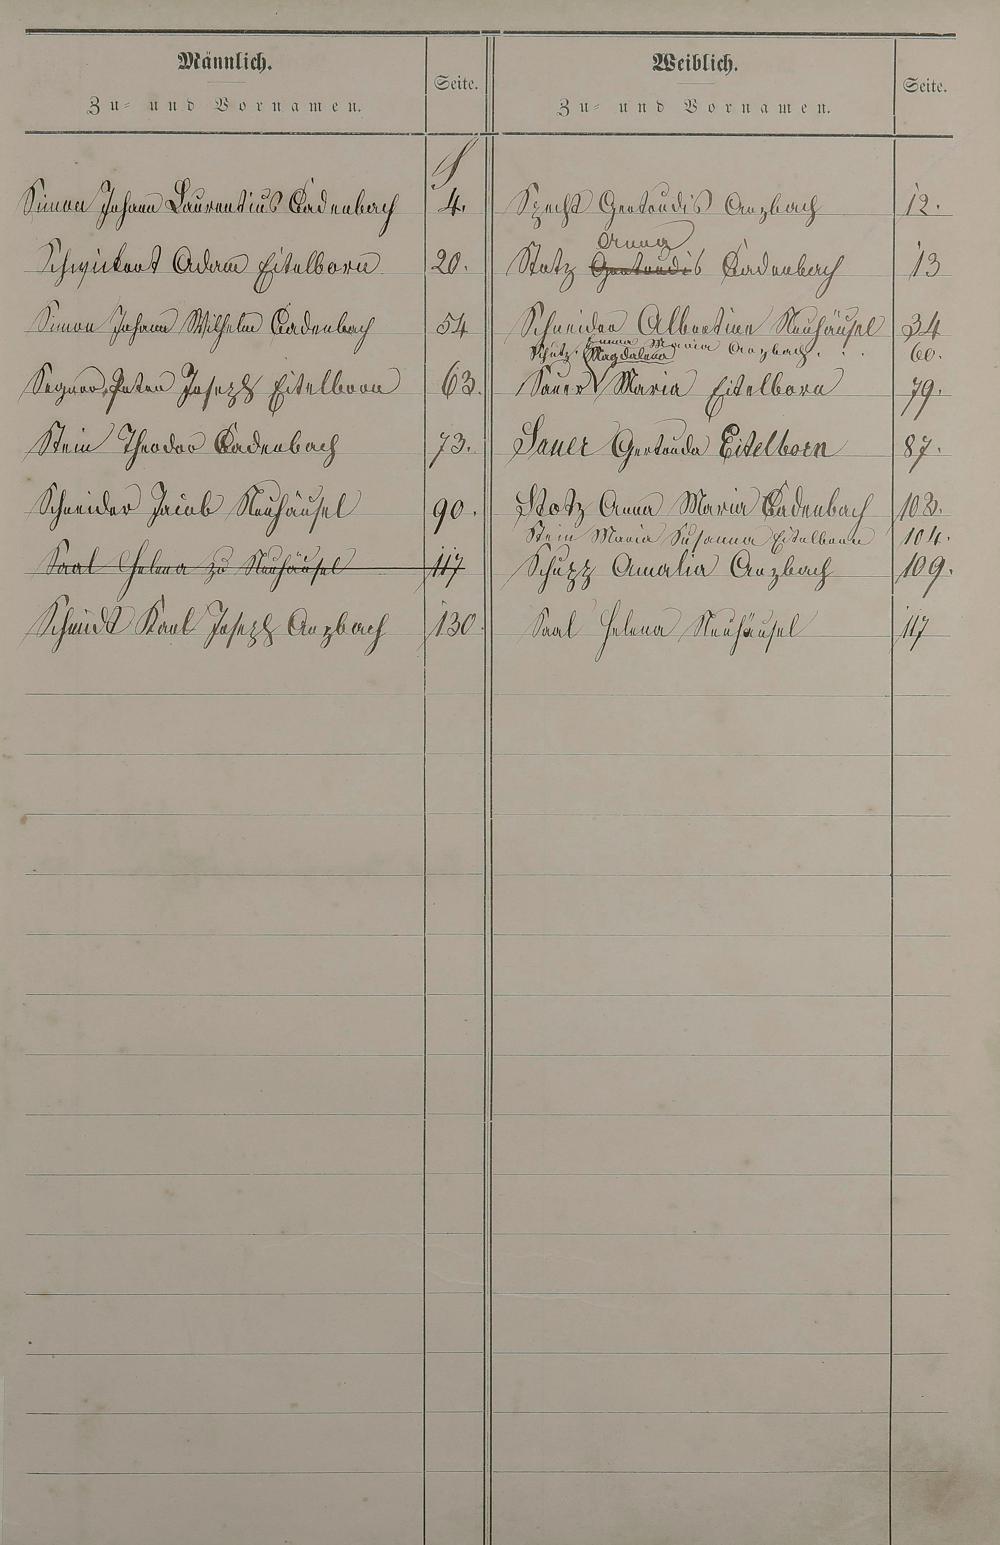 Männlich.
Zu- und Vornamen.
Seite.
Weiblich.
Zu- und Vornamen.
Seite.
S
Simon Johann Laurentius Cadenbach 4.
Schwickert Adam Eitelborn 20.
Simon Johann Wilhelm Cadenbach 54
Peter Joseph Eitelborn 63.
Stein Theodor Cadenbach 73.
Schneider Jacob Neuhäusel 90.
Saal Helena zu Neuhäusel 117
Schmidt Karl Joseph Arzbach 130.
Specht Gertrudis Arzbach 12.
Anna
Stotz Gertrudis Cadenbach 13
Schneider Albertine Neuhäusel 34
Schutz Maria Arzbach . . . 60.
Magdalena
Sauer Maria Eitelborn 79.
Sauer Gertruda Eitelborn 87.
Stotz Anna Maria Cadenbach 103.
Stein Maria Susanna Eitelborn 104.
Schupp Amalia Arzbach 109.
Saal Helena Neuhäusel 117